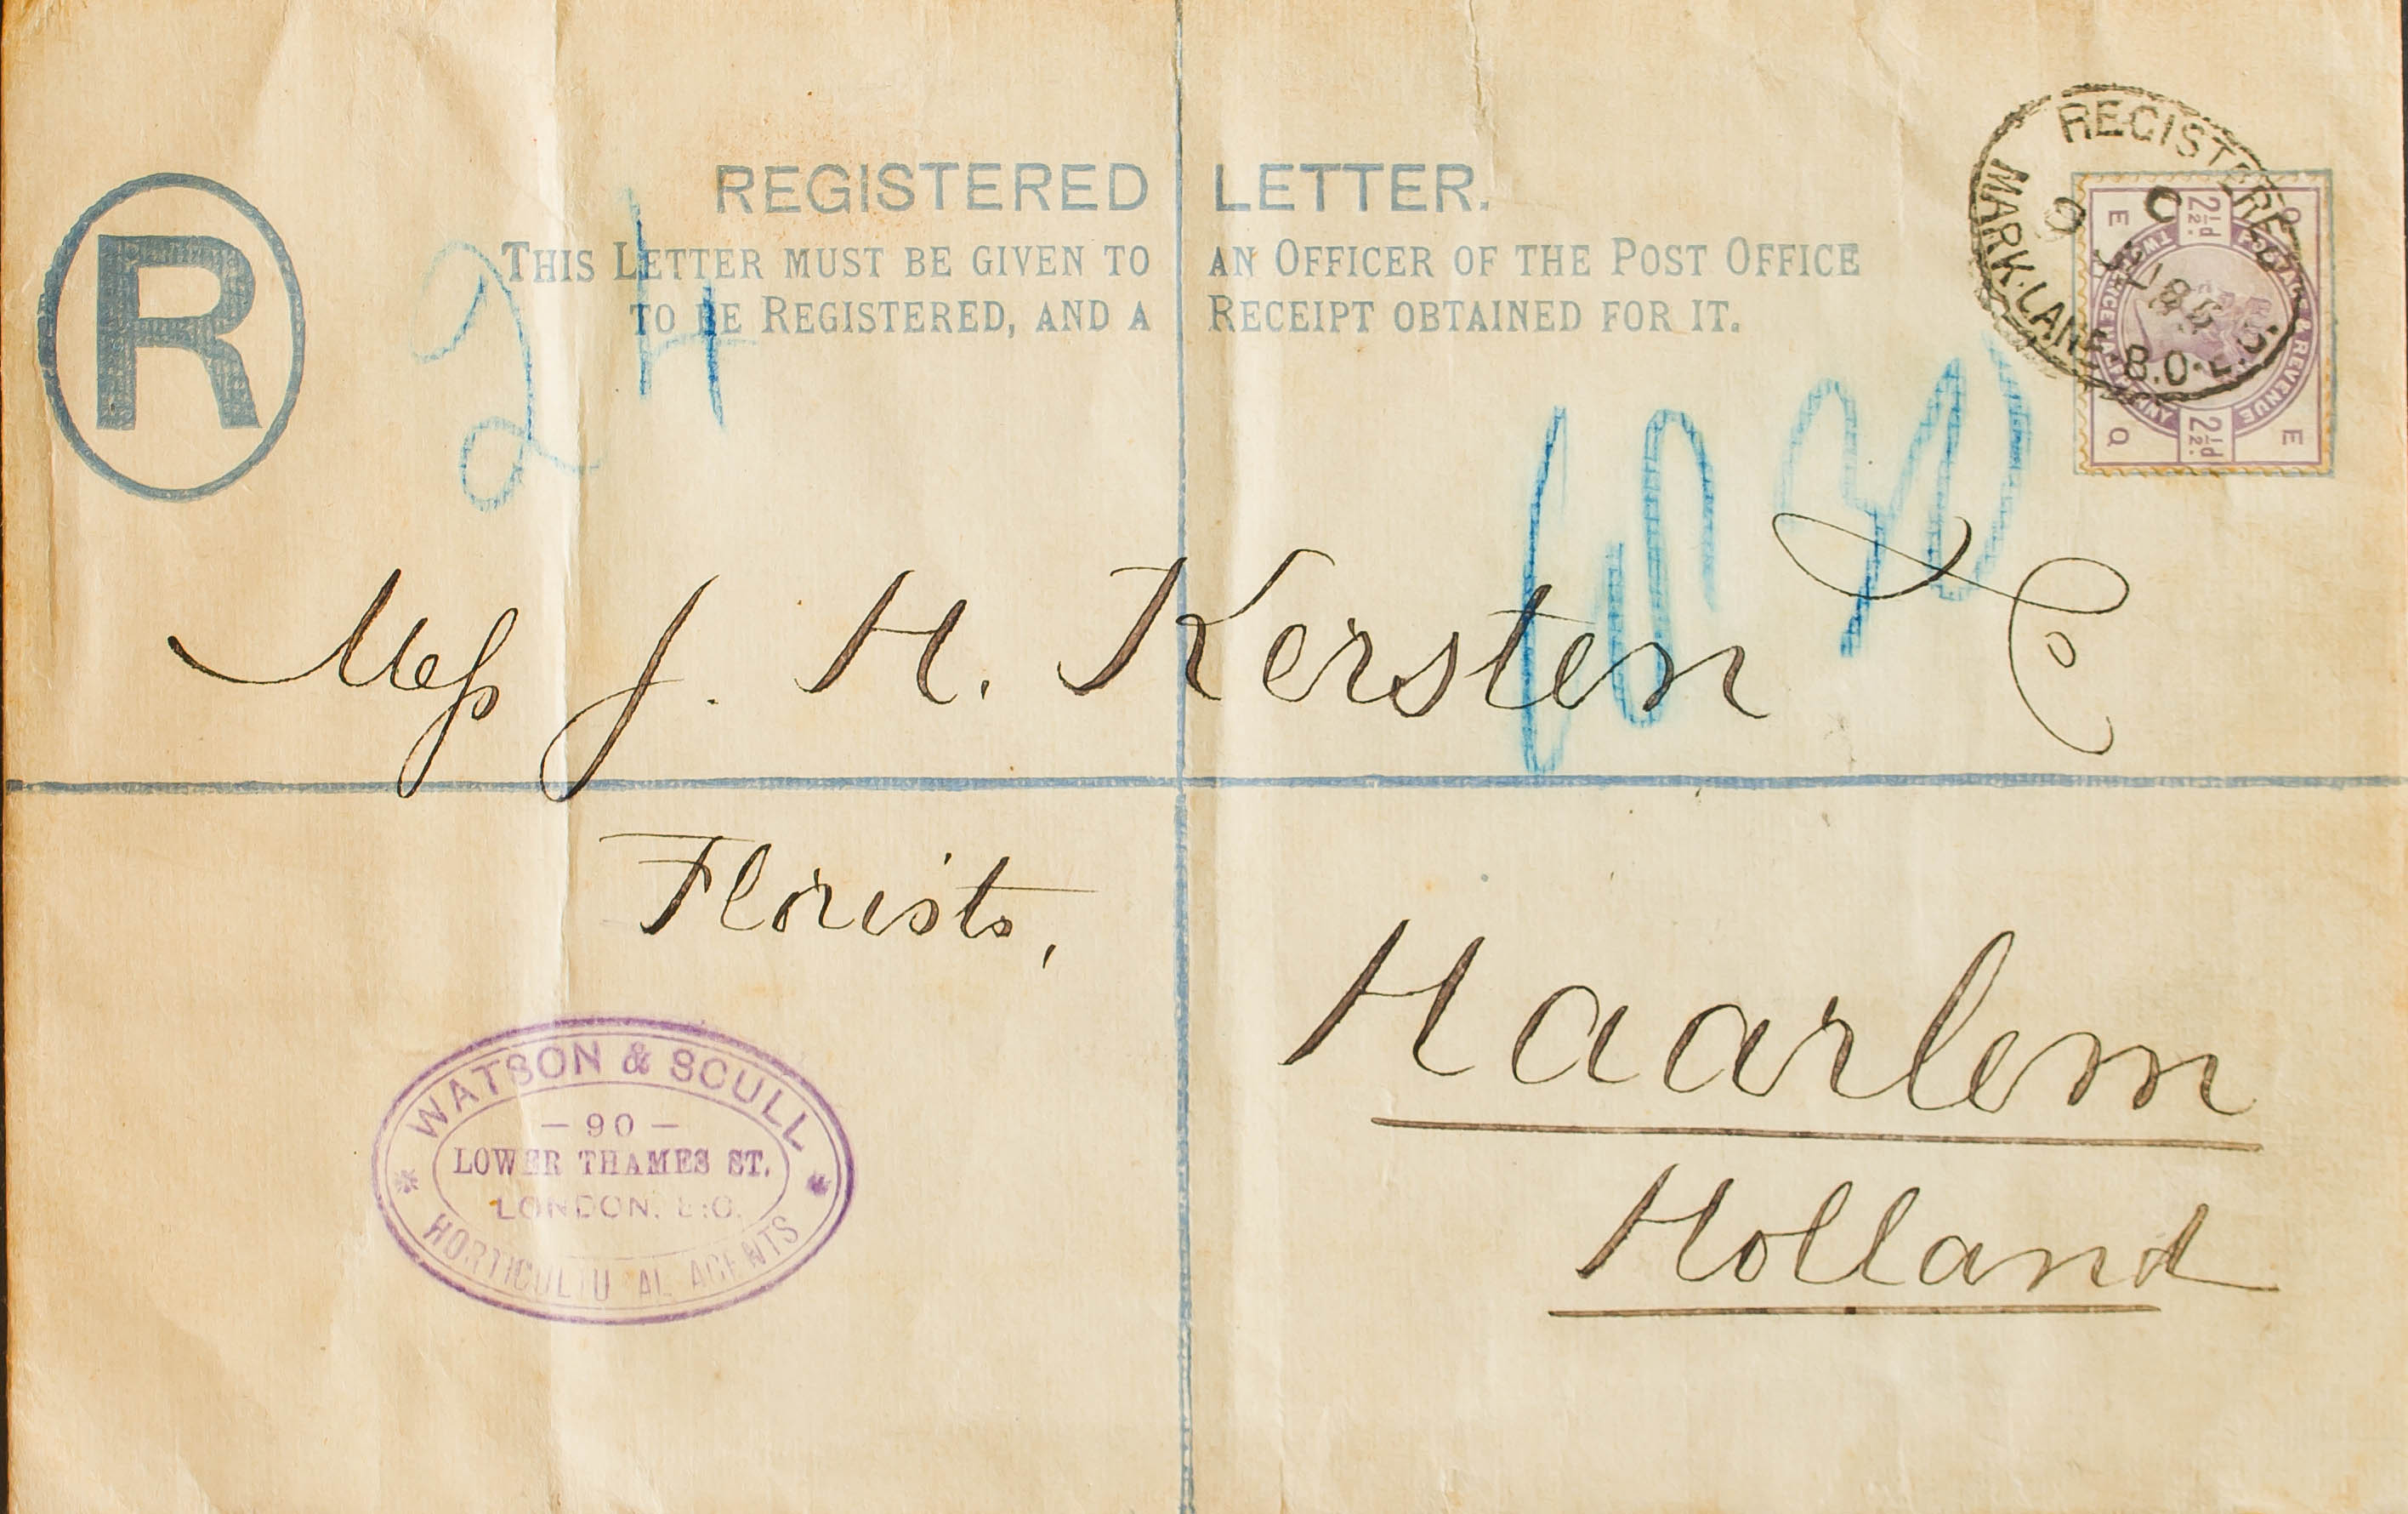 REGISTERED LETTER.
THIS LETTER MUST BE GIVEN TO AN OFFICER OF THE POST OFFICE
TO BE REGISTERED, AND A RECEIPT OBTAINED FOR IT.
R
24
REGISTERED
MARK·LANE B.O·E.C.
POSTAGE & REVENUE
2½d
2½d
E
Q
Q
E
Mess J. H. Kersten & Co
Florists,
Haarlem
Holland
WATSON & SCULL
- 90 -
LOWER THAMES ST.
LONDON. E.C.
HORTICULTURAL AGENTS